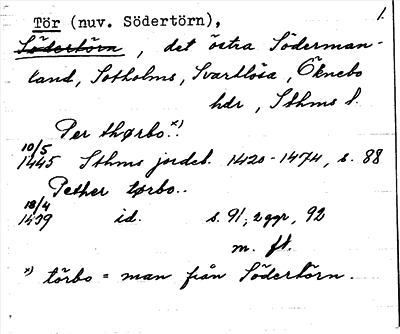 Tör (nuv. Södertörn), 1.
Södertörn, det östra Söderman-
land, Sotholms, Svartlösa, Öknebo
hdr, Sthms l.
Per thørbo.x).
10/5
1445 Sthms jordeb. 1420-1474, s. 88
Pether tørbo..
18/4
id. s. 91, 2 ggr, 92
m. fl.
x) törbo = man från Södertörn.